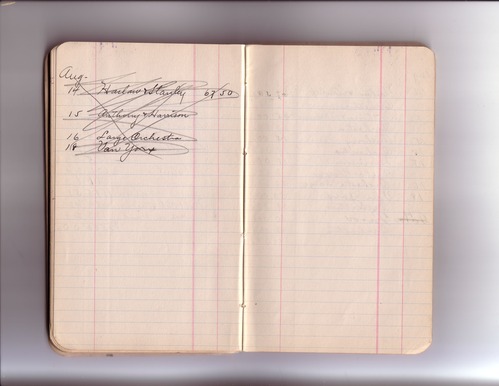 Aug.
14 Harlow & Stanley 67 50
15 Anthony & Harrison
16 Large Orchestra
18 Van